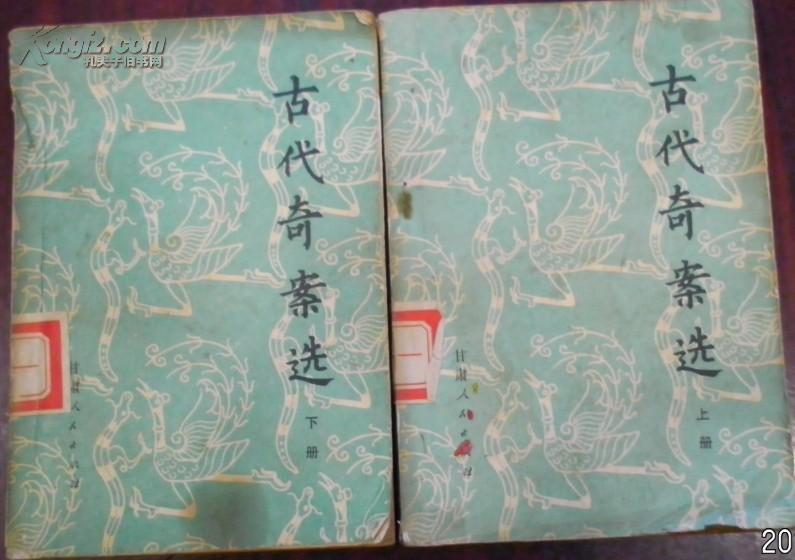 Kongfz.com
孔夫子旧书网
古代奇案选
下册
甘肃人民出版社
古代奇案选
上册
甘肃人
20